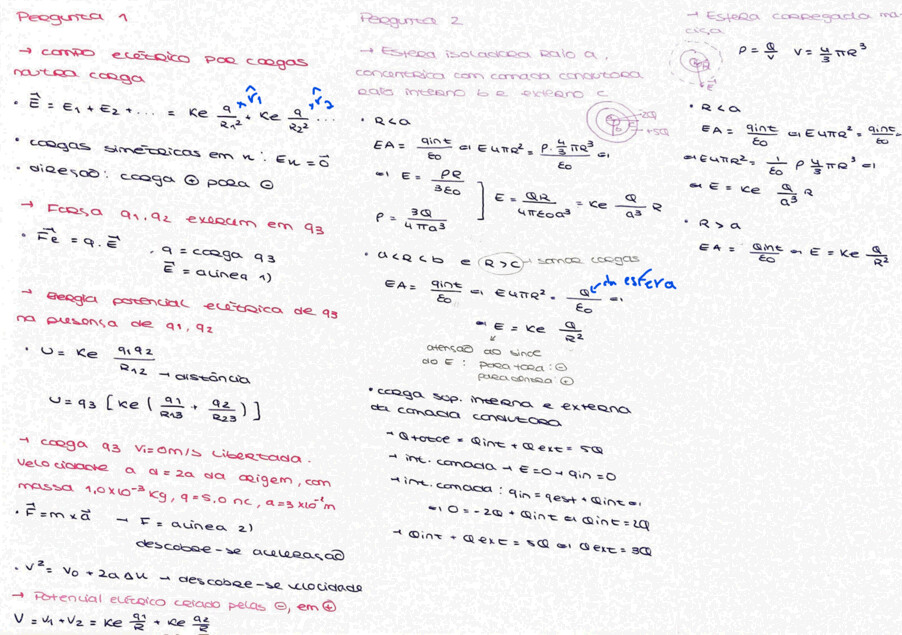 Pergunta 1
→ campo elétrico por cargas
noutra carga
• E⃗ = E1 + E2 + ... = Ke q/R1² × r̂1 + Ke q/R2² × r̂2 ...
• cargas simétricas em x : Ex = 0⃗
• direção : carga ⊕ para ⊖
→ Força q1, q2 exercem em q3
• F⃗e = q . E⃗
. q = carga q3
E⃗ = alínea 1)
→ Energia potencial elétrica de q3
na presença de q1, q2
• U = Ke q1q2/R12 → distância
U = q3 [Ke (q1/R13 + q2/R23)]
→ carga q3 Vi=0m/s libertada.
velocidade a d = 2a da origem, com
massa 1,0×10⁻³ Kg, q=5,0 nC, a=3×10⁻¹m
• F⃗ = m × a⃗ → F = alínea 2)
descobre-se aceleração
• V² = V0 + 2aΔx → descobre-se velocidade
→ Potencial elétrico criado pelas ⊖, em ⊕
V = V1 + V2 = Ke q1/R + Ke q2/R
Pergunta 2
→ Esfera isoladora raio a,
concêntrica com camada condutora
raio interno b e externo c
-2Q
+5Q
• R<a
EA = qint/ε0 ⇔ E4πR² = ρ.4/3 πR³/ε0 ⇔
⇔ E = ρR/3ε0
ρ = 3Q/4πa³
E = QR/4πε0a³ = Ke Q/a³ R
• a<R<b e R>c → somar cargas
EA = qint/ε0 ⇔ E4πR² = Q/ε0 ⇔
da esfera
⇔ E = Ke Q/R²
atenção ao sinal
do E : para fora : ⊖
para dentro ⊕
• carga sup. interna e externa
da camada condutora
→ Qtotal = Qint + Qext = 5Q
→ int. camada → E=0 → qin=0
→ int. camada : qin = qest + Qint ⇔
⇔ 0 = -2Q + Qint ⇔ Qint = 2Q
→ Qint + Qext = 5Q ⇔ Qext = 3Q
→ Esfera carregada ma-
ciça
ρ = Q/V V = 4/3 πR³
• R<a
EA = qint/ε0 ⇔ E4πR² = qint/ε0 =
⇔ E4πR² = 1/ε0 ρ 4/3 πR³ ⇔
⇔ E = Ke Q/a³ R
• R>a
EA = Qint/ε0 ⇔ E = Ke Q/R²